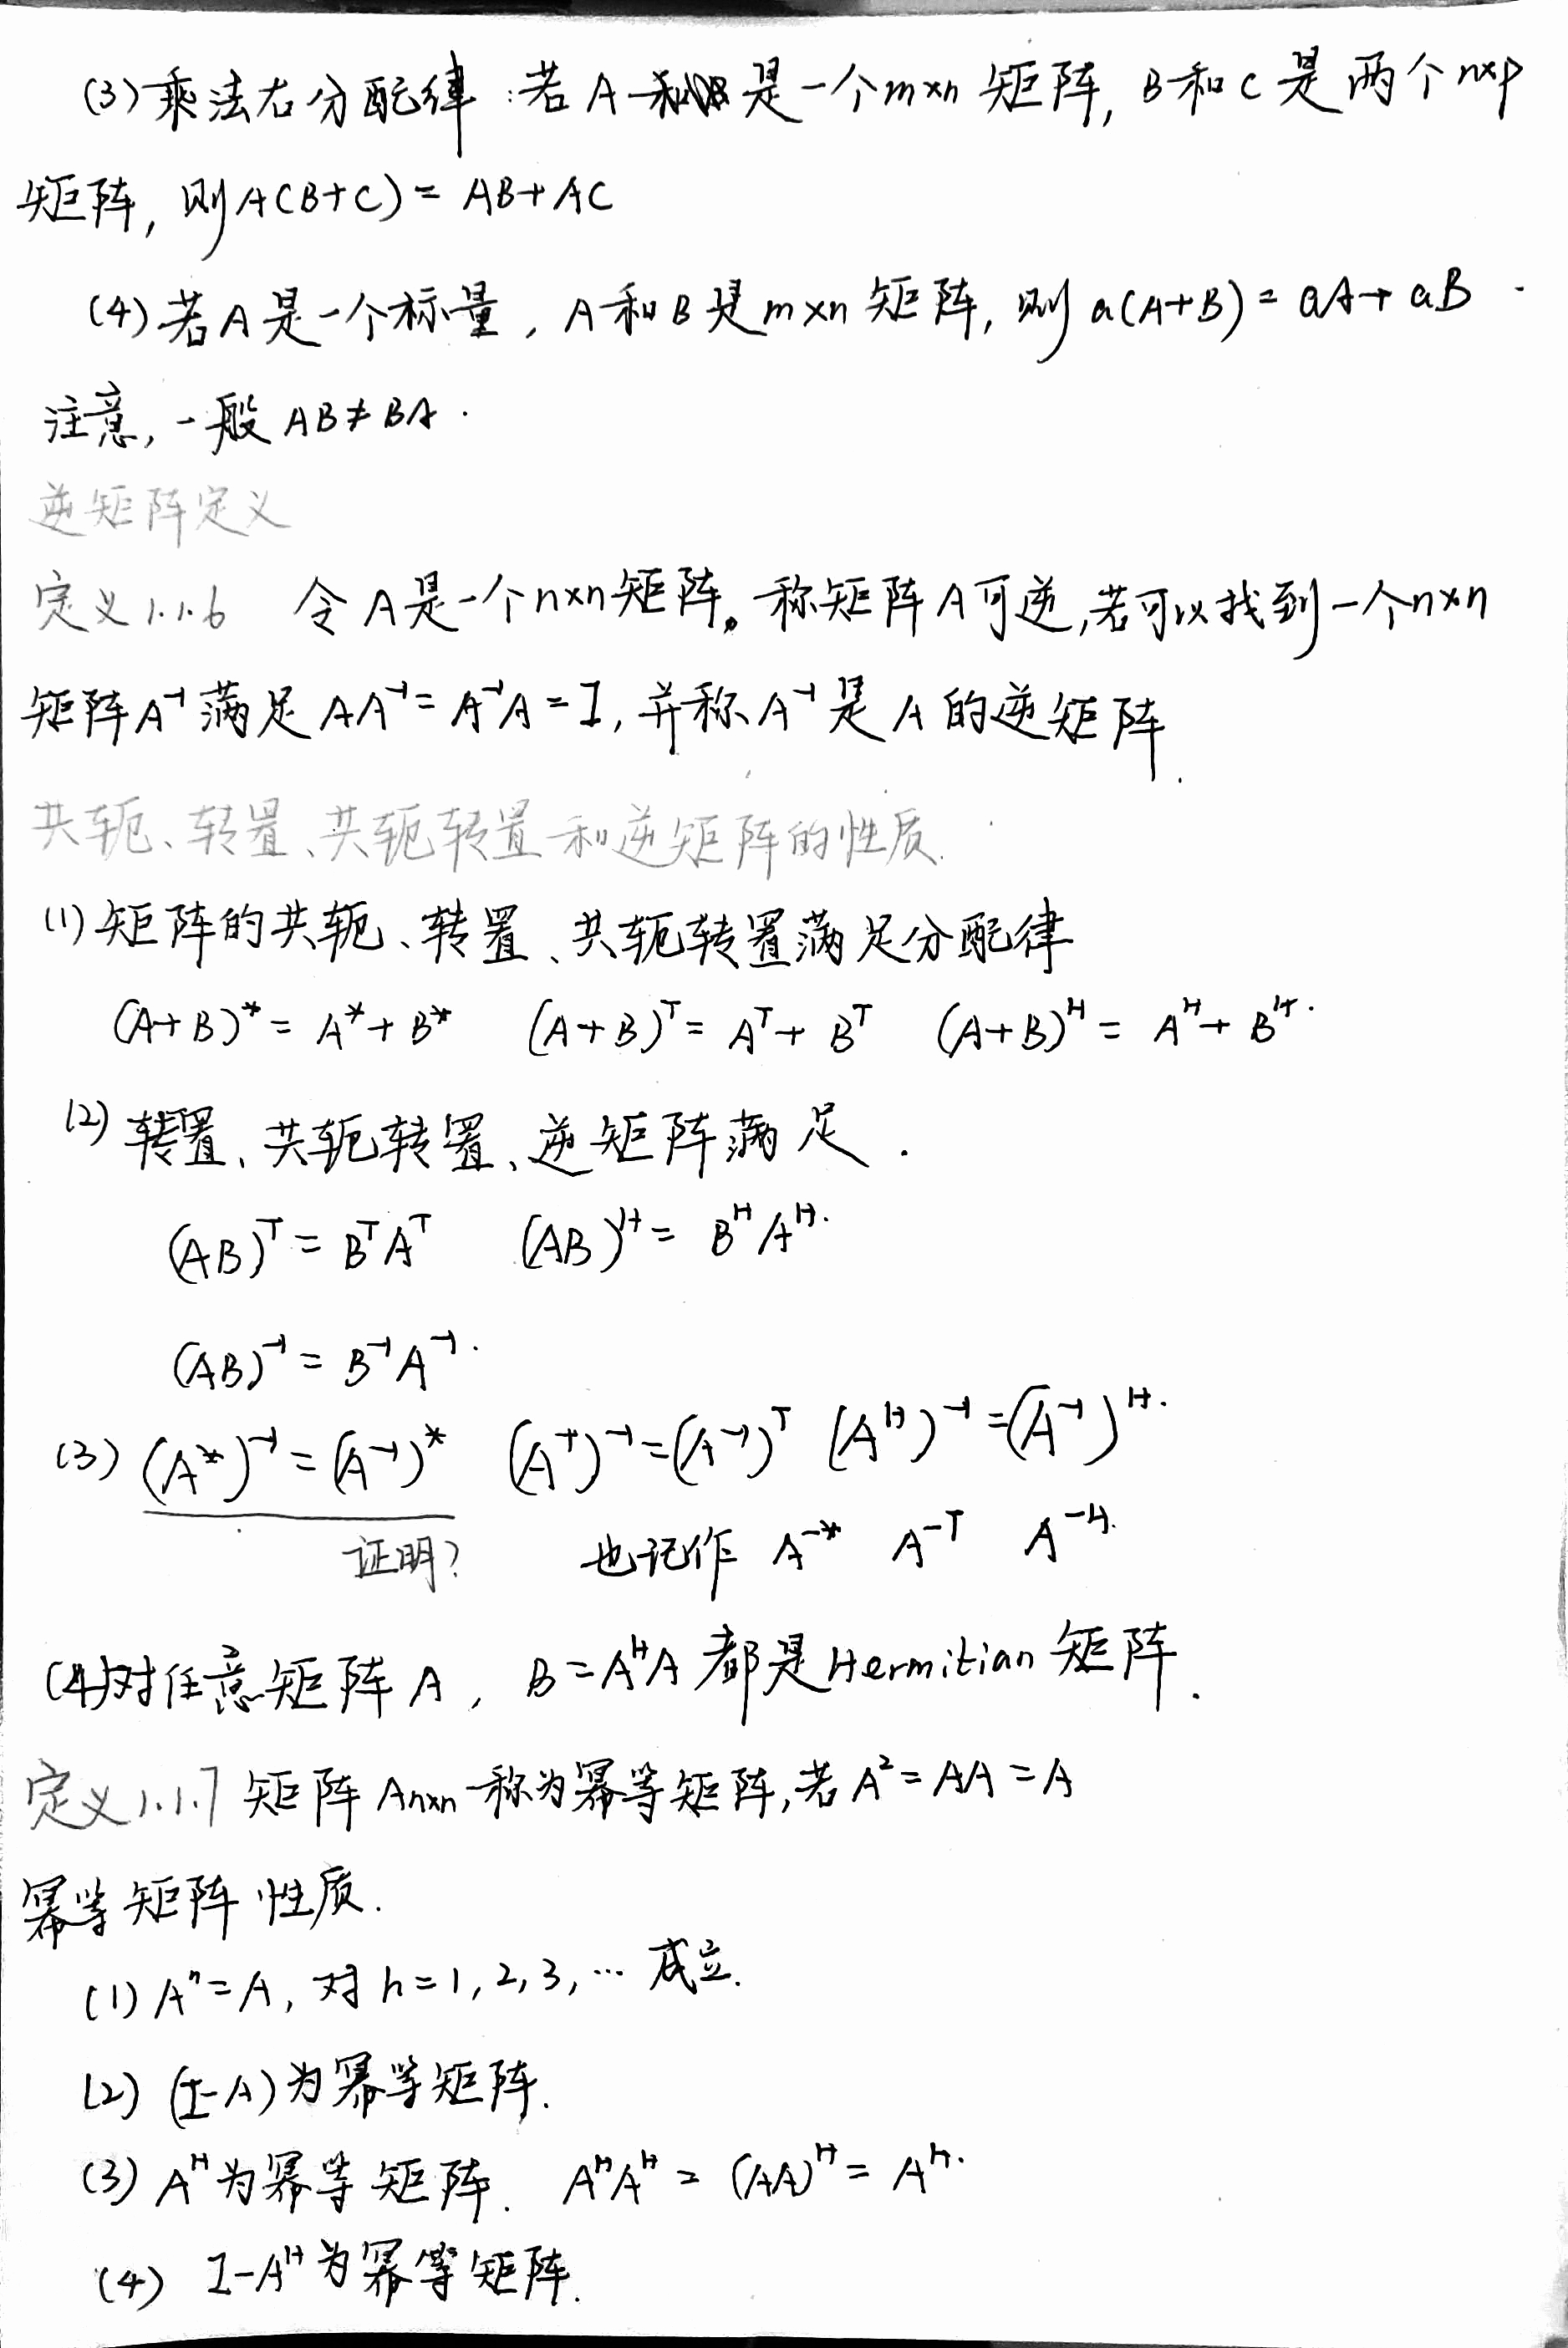 (3)乘法右分配律:若A是一个m×n矩阵,B和C是两个n×p
矩阵,则A(B+C)=AB+AC
(4)若A是一个标量,A和B是m×n矩阵,则a(A+B)=aA+aB.
注意,一般AB≠BA.
逆矩阵定义
定义1.1.6 令A是一个n×n矩阵。称矩阵A可逆,若可以找到一个n×n
矩阵A⁻¹满足AA⁻¹=A⁻¹A=I,并称A⁻¹是A的逆矩阵.
共轭、转置、共轭转置和逆矩阵的性质.
(1)矩阵的共轭、转置、共轭转置满足分配律
(A+B)*=A*+B* (A+B)ᵀ=Aᵀ+Bᵀ (A+B)ᴴ=Aᴴ+Bᴴ.
(2)转置、共轭转置、逆矩阵满足.
(AB)ᵀ=BᵀAᵀ (AB)ᴴ=BᴴAᴴ.
(AB)⁻¹=B⁻¹A⁻¹.
(3)(A*)⁻¹=(A⁻¹)* (Aᵀ)⁻¹=(A⁻¹)ᵀ (Aᴴ)⁻¹=(A⁻¹)ᴴ.
证明? 也记作 A⁻* A⁻ᵀ A⁻ᴴ.
(4)对任意矩阵A,B=AᴴA都是Hermitian矩阵.
定义1.1.7 矩阵Aₙₓₙ称为幂等矩阵,若A²=AA=A
幂等矩阵性质.
(1)Aⁿ=A,对n=1,2,3,…成立.
(2)(I-A)为幂等矩阵.
(3)Aᴴ为幂等矩阵. AᴴAᴴ=(AA)ᴴ=Aᴴ.
(4) I-Aᴴ为幂等矩阵.